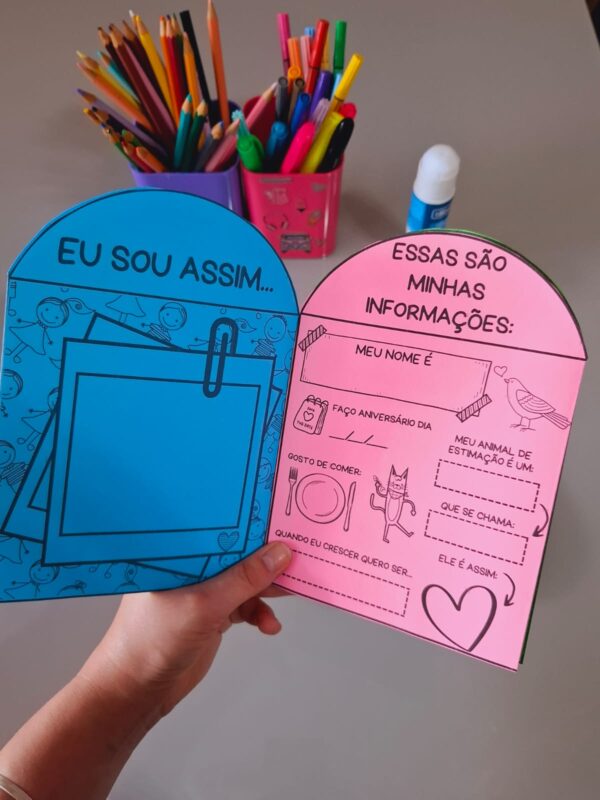 EU SOU ASSIM...
ESSAS SÃO
MINHAS
INFORMAÇÕES:
MEU NOME É
FAÇO ANIVERSÁRIO DIA
__/__/__
GOSTO DE COMER:
QUANDO EU CRESCER QUERO SER...
MEU ANIMAL DE
ESTIMAÇÃO É UM:
QUE SE CHAMA:
ELE É ASSIM: